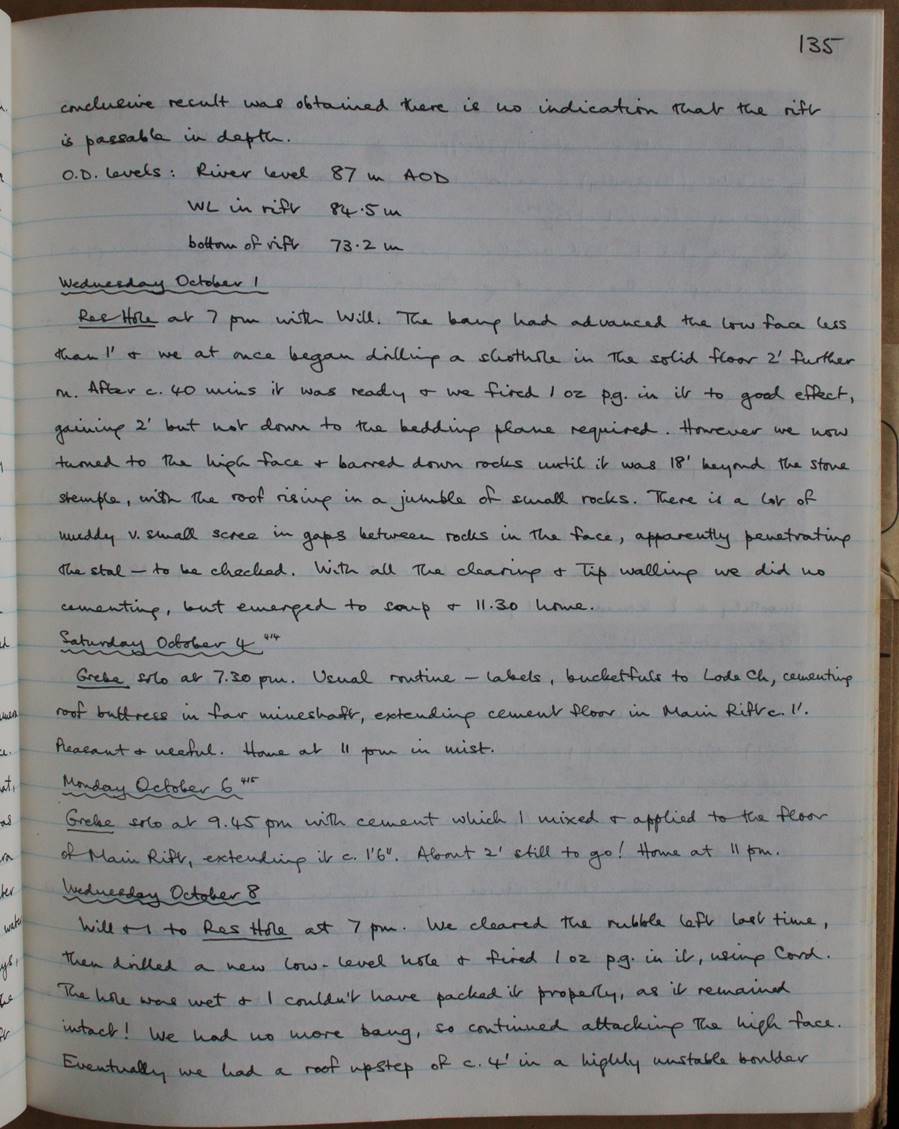 135
conclusive result was obtained there is no indication that the rift
is passable in depth.
O.D. levels: River level 87 m AOD
WL in rift 84.5 m
bottom of rift 73.2 m
Wednesday October 1
Res Hole at 7 pm with Will. The bang had advanced the low face less
than 1' + we at once began drilling a shothole in the solid floor 2' further
in. After c. 40 mins it was ready + we fired 1 oz pg. in it to good effect,
gaining 2' but not down to the bedding plane required. However we now
turned to the high face + barred down rocks until it was 18' beyond the stone
stemple, with the roof rising in a jumble of small rocks. There is a lot of
muddy v. small scree in gaps between rocks in the face, apparently penetrating
the stal — to be checked. With all the clearing + Tip walling we did no
cementing, but emerged to soup + 11.30 home.
Saturday October 4 414
Grebe solo at 7.30 pm. Usual routine — labels, bucketfuls to Lode Ch, cementing
roof buttress in far mineshaft, extending cement floor in Main Rift c. 1'.
Pleasant + useful. Home at 11 pm in mist.
Monday October 6 415
Grebe solo at 9.45 pm with cement which I mixed + applied to the floor
of Main Rift, extending it c. 1'6". About 2' still to go! Home at 11 pm.
Wednesday October 8
Will + I to Res Hole at 7 pm. We cleared the rubble left last time,
then drilled a new low-level hole + fired 1 oz pg. in it, using Cord.
The hole was wet + I couldn't have packed it properly, as it remained
intact! We had no more bang, so continued attacking the high face.
Eventually we had a roof upstep of c. 4' in a highly unstable boulder